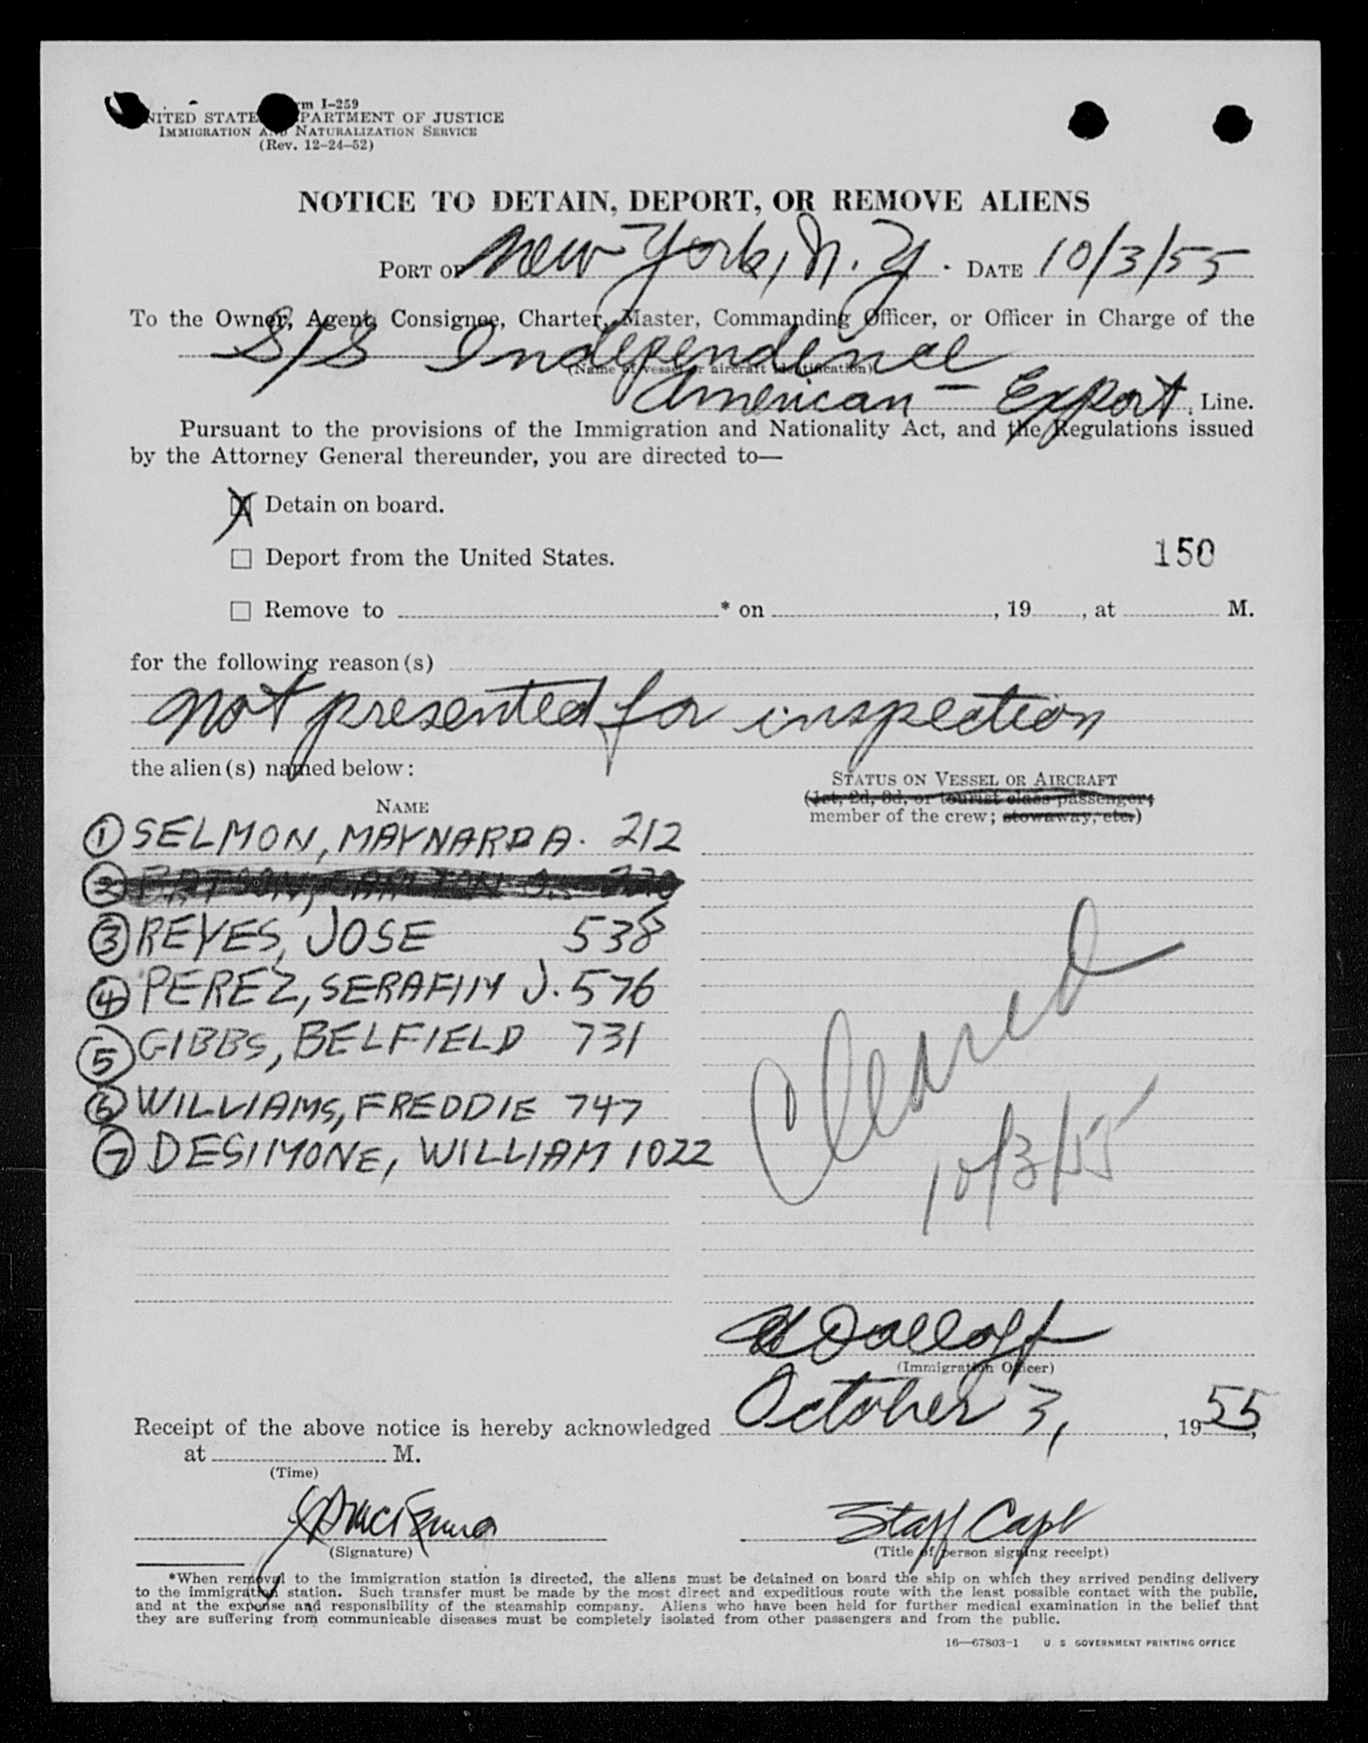 Form I-259
UNITED STATES DEPARTMENT OF JUSTICE
IMMIGRATION AND NATURALIZATION SERVICE
(Rev. 12-24-52)
NOTICE TO DETAIN, DEPORT, OR REMOVE ALIENS
PORT OF New York, N.Y. DATE 10/3/55
To the Owner, Agent, Consignee, Charter, Master, Commanding Officer, or Officer in Charge of the
S/S Independence
(Name of vessel or aircraft identification)
American - Export, Line.
Pursuant to the provisions of the Immigration and Nationality Act, and the Regulations issued
by the Attorney General thereunder, you are directed to—
X Detain on board.
☐ Deport from the United States.
150
☐ Remove to * on , 19 , at M.
for the following reason(s)
Not presented for inspection
the alien(s) named below:
STATUS ON VESSEL OR AIRCRAFT
(1st, 2d, 3d, or tourist class passenger;
member of the crew; stowaway, etc.)
NAME
① SELMON, MAYNARD A. 212
②
③ REYES, JOSE 538
④ PEREZ, SERAFIM J. 576
⑤ GIBBS, BELFIELD 731
⑥ WILLIAMS, FREDDIE 747
⑦ DESIMONE, WILLIAM 1022
Cleared
10/3/55
(Immigration Officer)
Receipt of the above notice is hereby acknowledged October 3, , 1955,
at M.
(Time)
Staff Capt
(Signature) (Title of person signing receipt)
*When removal to the immigration station is directed, the aliens must be detained on board the ship on which they arrived pending delivery
to the immigration station. Such transfer must be made by the most direct and expeditious route with the least possible contact with the public,
and at the expense and responsibility of the steamship company. Aliens who have been held for further medical examination in the belief that
they are suffering from communicable diseases must be completely isolated from other passengers and from the public.
16—67803-1 U S GOVERNMENT PRINTING OFFICE